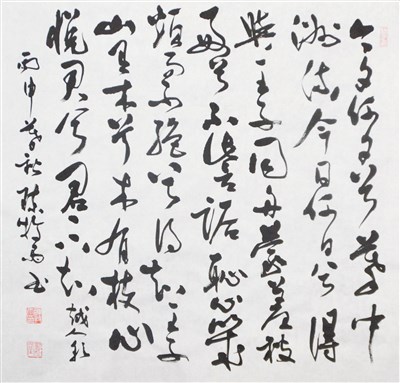 今夕何夕兮搴中
洲流今日何日兮得
與王子同舟蒙羞被
好兮不訾詬恥心幾
煩而不絕兮得知王子
山有木兮木有枝心
悅君兮君不知 越人歌
丙申暮秋陈书